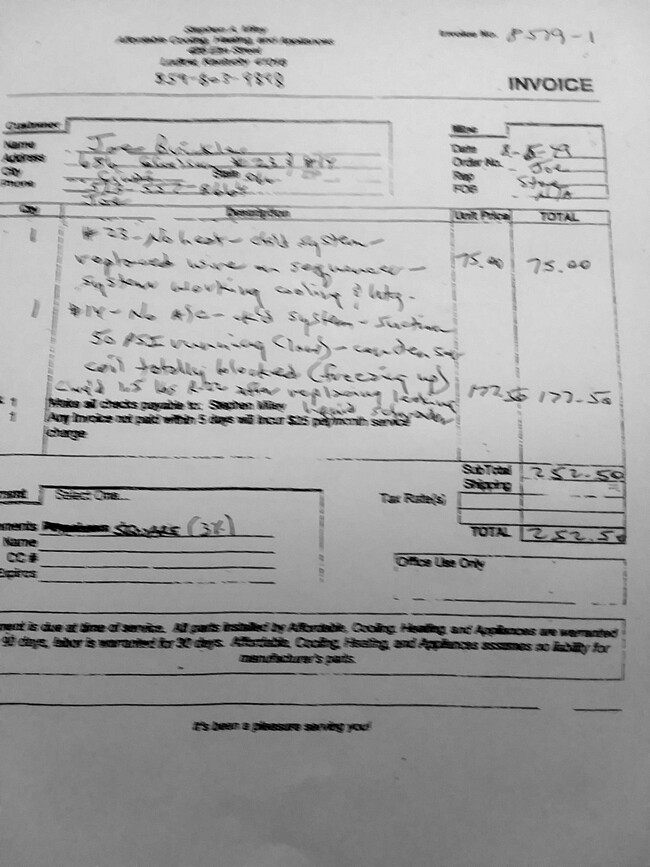 Stephen A. Wiley
Invoice No. 8579-1
Affordable Cooling, Heating, and Appliances
Street
Ludlow, Kentucky
859-803-9898
INVOICE
Customer
Misc
Name Joe
Date 8-5-19
Address # 23 & #14
Order No. Joe
City State
Rep Steve
Phone
FOB N/A
Joe
Qty Description Unit Price TOTAL
1 # 23 - No heat - chkd system -
replaced wire on sequencer - 75.00 75.00
system working cooling & htg.
1 #14 - No A/C - chkd system - suction
50 PSI running (low) - condenser
coil totally blocked (freezing up)
1.5 lbs R-22 after replacing leaking 177.50 177.50
1 Make all checks payable to: Stephen Wiley liquid schrader
1 Any invoice not paid within 5 days will incur $25 per/month service
charge
SubTotal 252.50
Shipping
ment Select One...
Tax Rate(s)
ments (3%)
TOTAL 252.50
Name
CC #
Expires
Office Use Only
ment is due at time of service. All parts installed by Affordable, Cooling, Heating, and Appliances are warranted
90 days, labor is warranted for 30 days. Affordable, Cooling, Heating, and Appliances assumes no liability for
manufacturer's parts.
It's been a pleasure serving you!